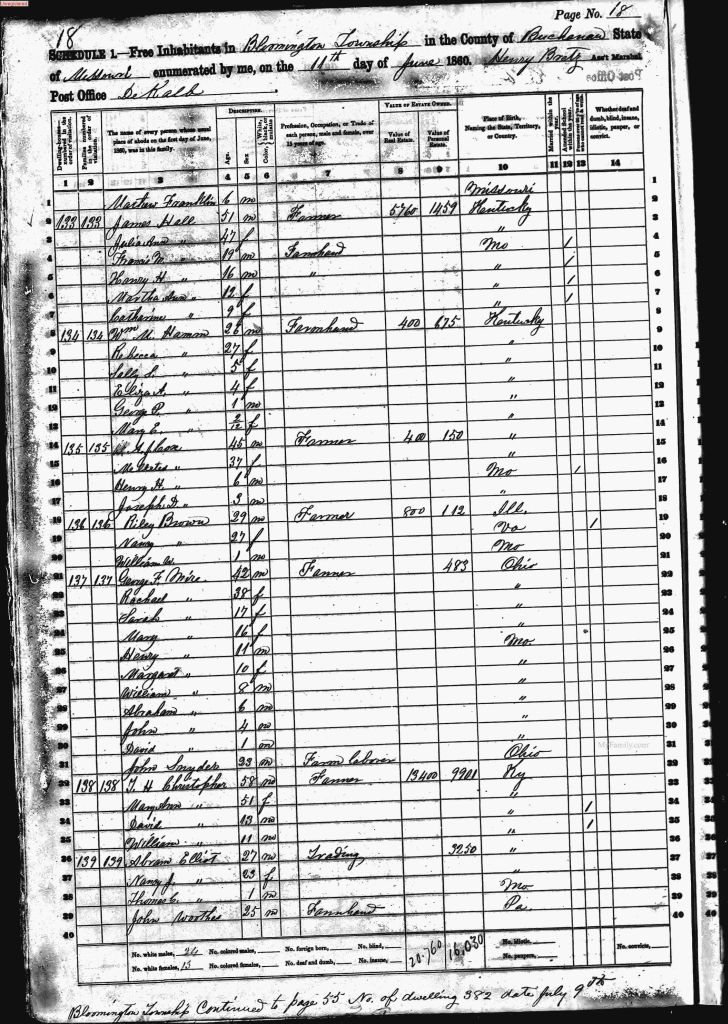 Page No. 18
18
SCHEDULE 1.—Free Inhabitants in Bloomington Township in the County of Buchanan State
of Missouri enumerated by me, on the 11th day of June 1860. Henry Bretz Ass't Marshal.
Post Office DeKalb
Dwelling-houses numbered in the order of visitation.
Families numbered in the order of visitation.
The name of every person whose usual place of abode on the first day of June, 1860, was in this family.
DESCRIPTION.
Age.
Sex
White, black, or mulatto. Color
Profession, Occupation, or Trade of each person, male and female, over 15 years of age.
VALUE OF ESTATE OWNED.
Value of Real Estate.
Value of Estate.
Place of Birth, Naming the State, Territory, or Country.
Married within the year.
Attended School within the year.
Whether deaf and dumb, blind, insane, idiotic, pauper, or convict.
1 2 3 4 5 6 7 8 9 10 11 12 13 14
1 Mathew Franklin 6 m Missouri
2 133 133 James Hall 51 m Farmer 5760 1459 Kentucky
3 Julia Ann " 47 f "
4 Francis M. " 19 m Farmhand Mo 1
5 Henry H " 16 m " " 1
6 Martha Ann " 12 f " 1
7 Catharine " 9 f " 1
8 134 134 Wm M. Hamm 25 m Farmhand 400 675 Kentucky
9 Rebecca " 27 f "
10 Sally S. " 5 f "
11 Eliza A. " 4 f "
12 George P. " 1 m "
13 Mary E. " 2/12 f "
14 135 135 45 m Farmer 400 150 "
15 " 37 f "
16 Henry H. " 6 m Mo 1
17 Joseph D. " 3 m "
18 136 136 Riley Brown 29 m Farmer 800 112 Ill.
19 Nancy " 27 f Va 1
20 William W. 1 m Mo
21 137 137 George F. Mire 42 m Farmer 483 Ohio
22 Rachael " 38 f "
23 Sarah " 17 f "
24 Mary " 16 f "
25 Henry " 11 m Mo.
26 Margaret " 10 f "
27 William " 8 m "
28 Abraham " 6 m "
29 John " 4 m "
30 David " 1 m "
31 John Snyder 33 m Farm laborer Ohio
32 138 138 T. H Christopher 58 m Farmer 13400 9901 Ky
33 Mary Ann " 51 f "
34 David " 13 m " 1
35 William " 11 m " 1
36 139 139 Abram Elliot 27 m Trading 3250 "
37 Nancy J. " 23 f "
38 Thomas E. " 1 m Mo
39 John Woothes 25 m Farmhand Pa
40
No. white males, 24 No. colored males, No. foreign born, No. blind, 20.760 16.030 No. idiotic, No. convicts,
No. white females, 15 No. colored females, No. deaf and dumb, No. insane, No. paupers,
Bloomington Township Continued to page 55 No. of dwelling 382 date July 9th
MyFamily.com